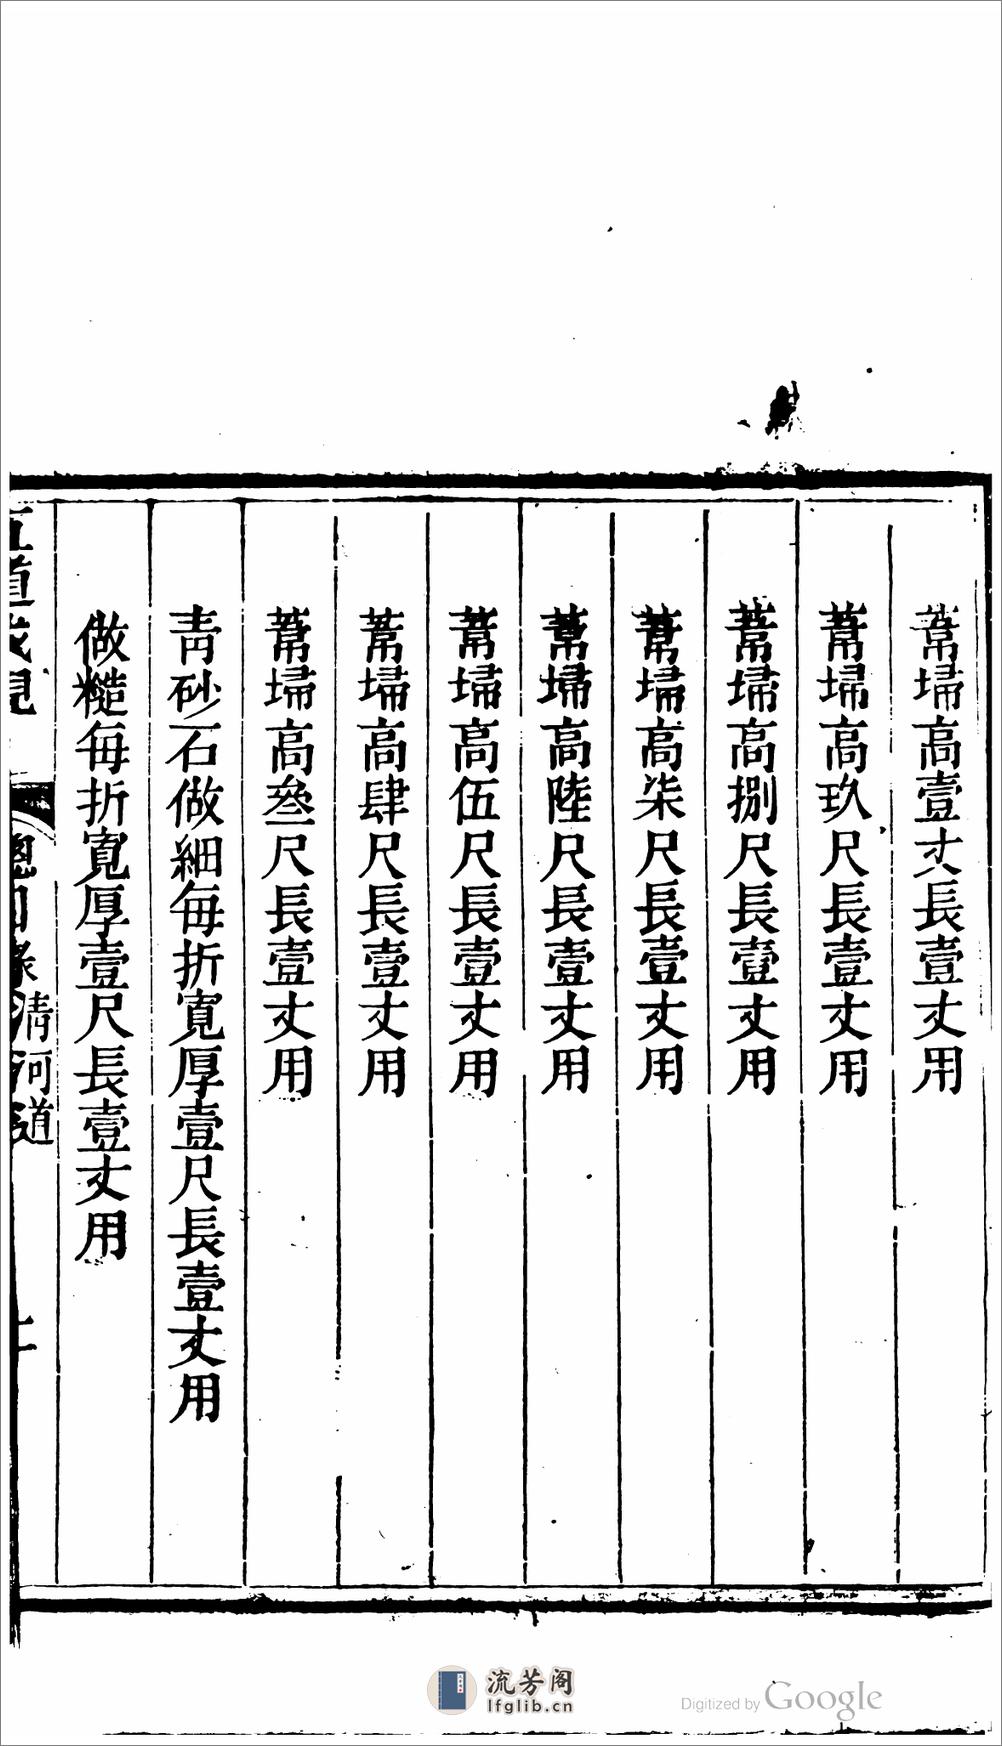 葦埽高壹丈長壹丈用
葦埽高玖尺長壹丈用
葦埽高捌尺長壹丈用
葦埽高柒尺長壹丈用
葦埽高陸尺長壹丈用
葦埽高伍尺長壹丈用
葦埽高肆尺長壹丈用
葦埽高叄尺長壹丈用
青砂石做細每折寬厚壹尺長壹丈用
做糙每折寬厚壹尺長壹丈用
五道成規
總目錄 清河道
流芳阁
lfglib.cn
Digitized by Google